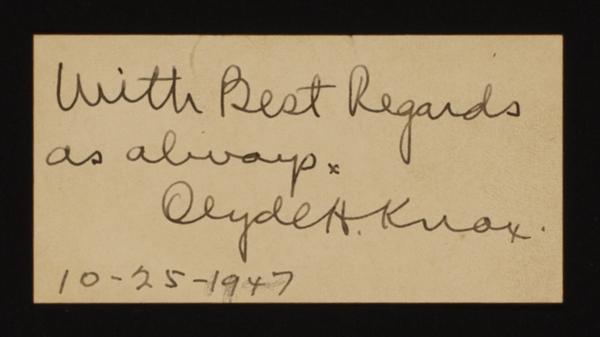 With Best Regards
as always.
Clyde H. Knox.
10-25-1947